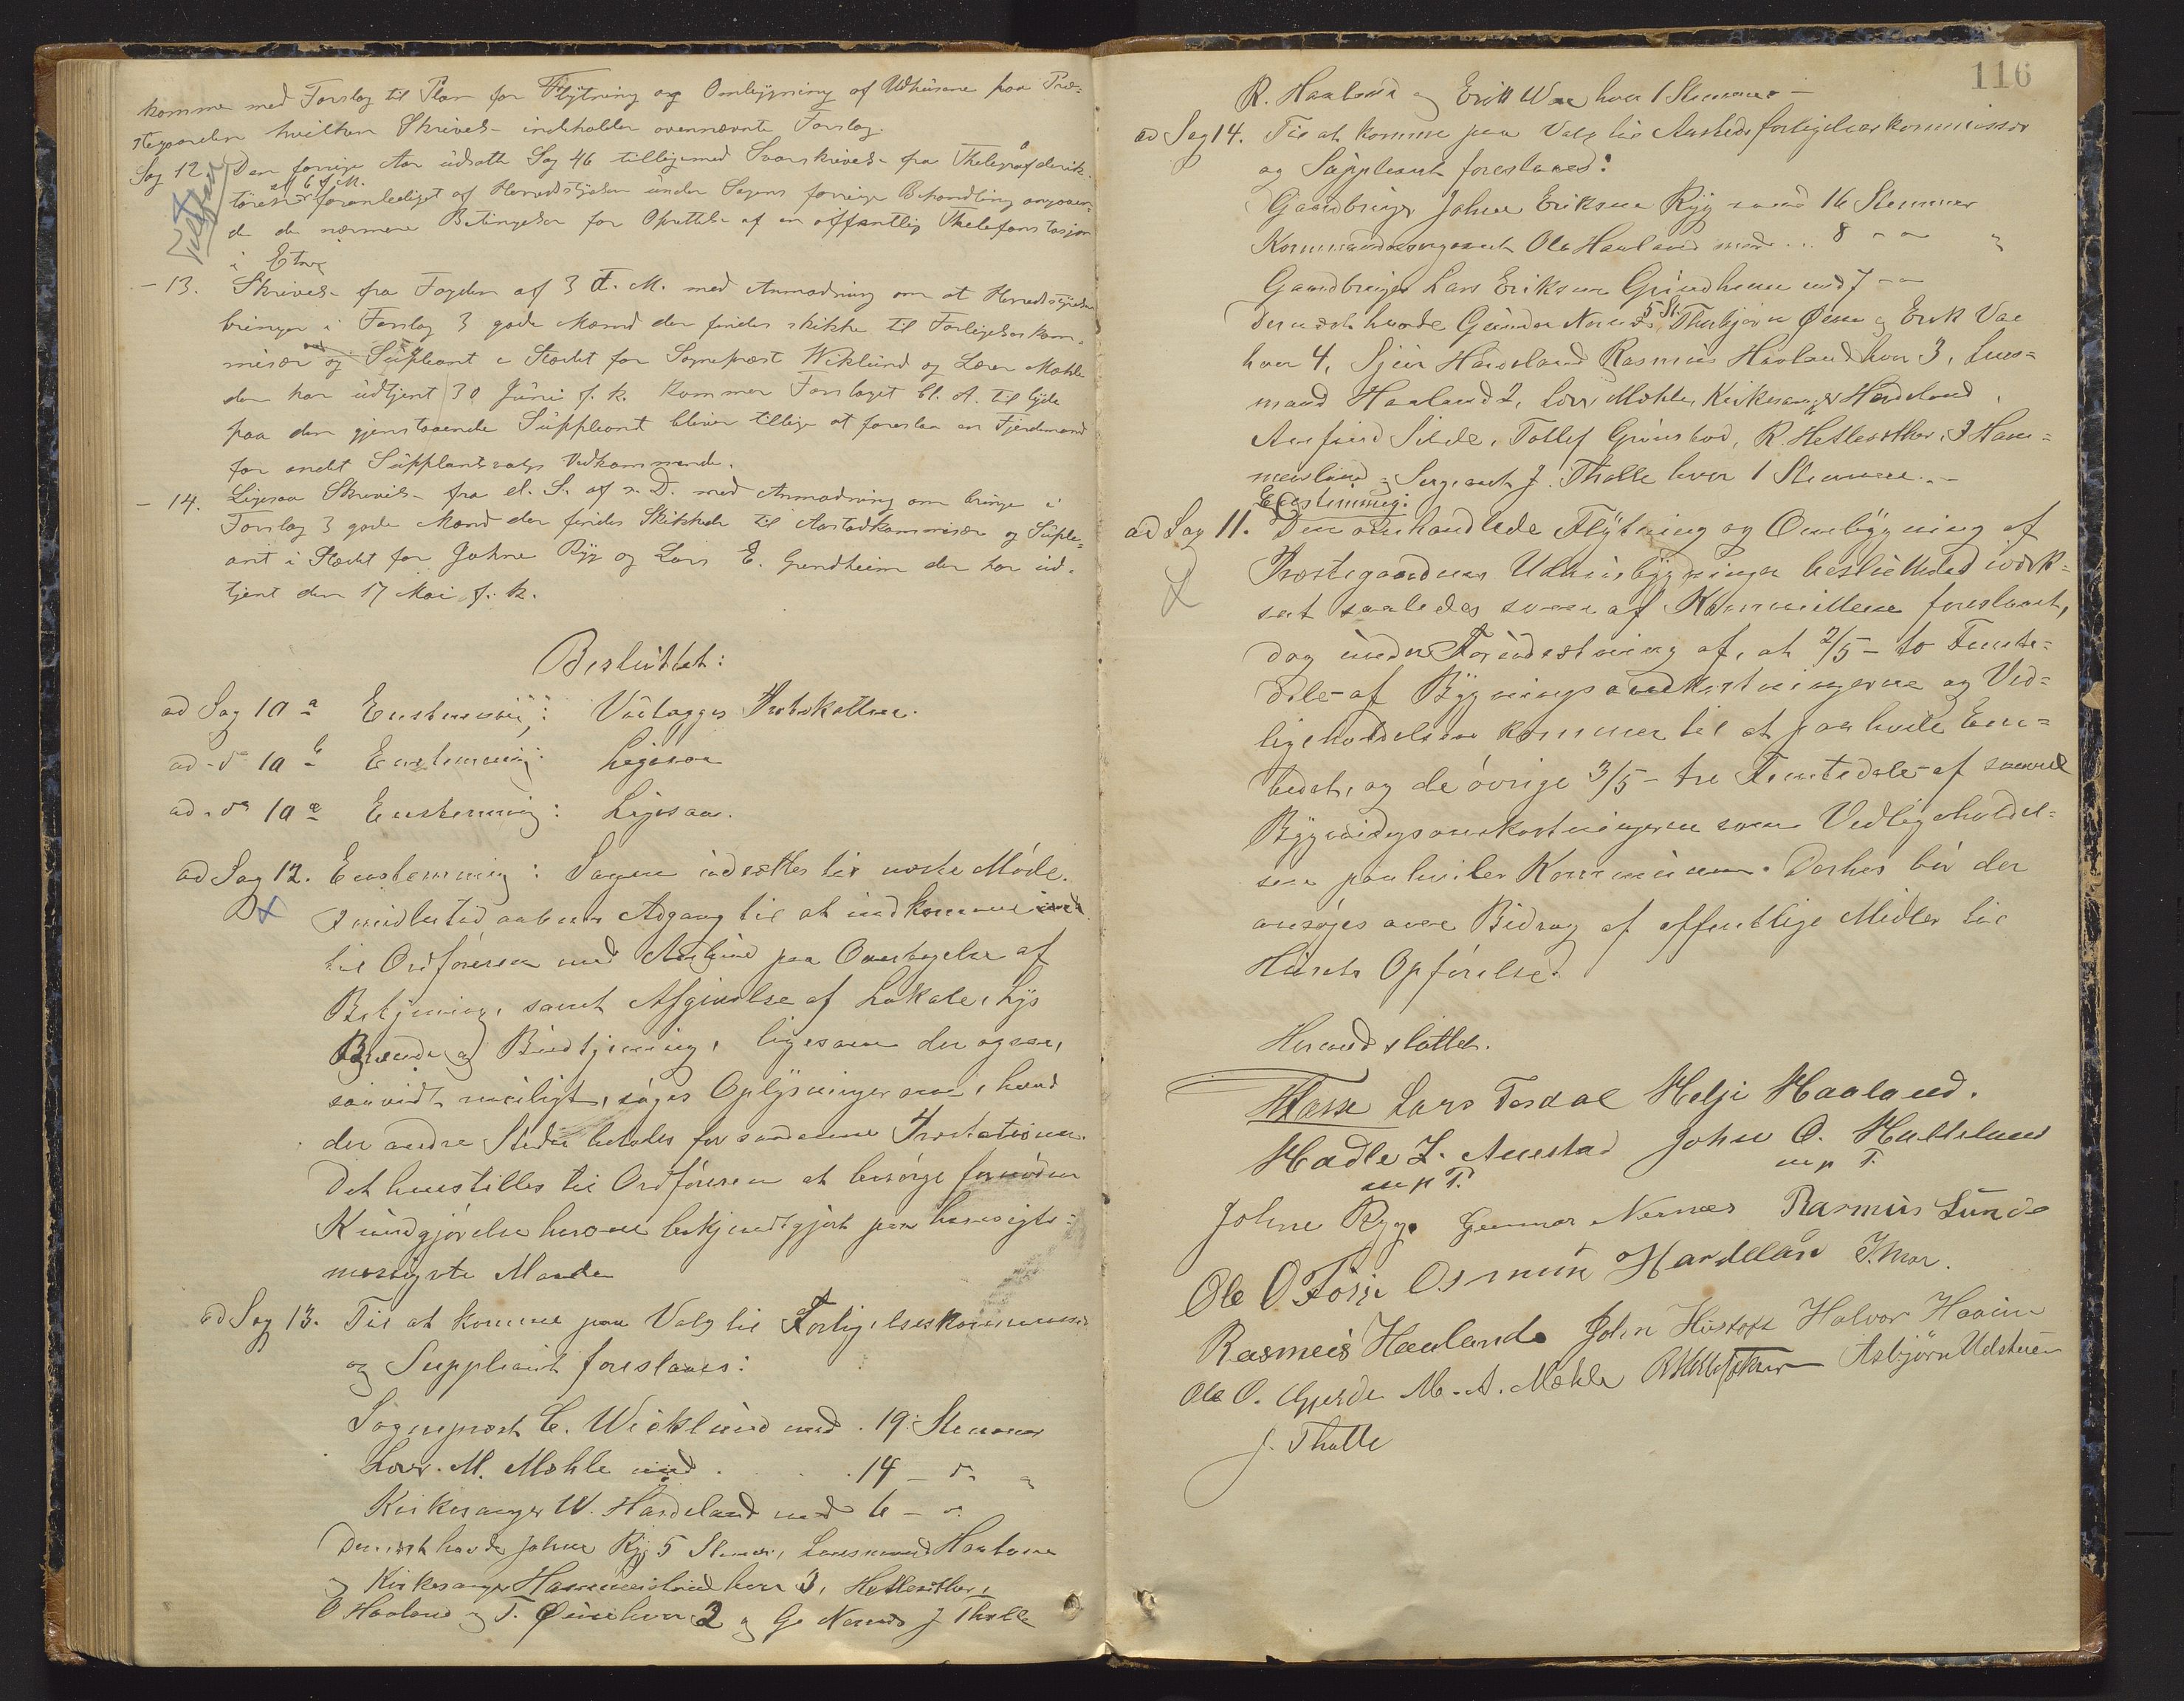 komme med Forslag til Plan for Flytning og Ombygning af Udhusene paa Præ=
stegaarden hvilken Skrivelse indeholder ovennævnte Forslag.
Sag 12. Den forrige Aar udsatte Sag 46 tilligemed Svarskrivelse fra Thelegrafderik
tøren af 6 f. M. foranlediget af Herredsstyrelsen under Sagens forrige Behandling angaaen=
de de nærmere Betingelser for Oprettelse af en offentlig Thelefonstasjon
i Etne
- 13. Skrivelse fra Fogden af 3 d. M. med Anmodning om at Herredsstyrelsen
bringer i Forslag 3 gode Mænd der findes skikket til Forligelseskom=
misær og Supleant i Stedet for Sogneprest Wiklund og Lærer Mæhle
der har udtjent 30 Juni f. k. kommer Forslaget bl. A. til lyde
paa den gjenstaaende Suppleant bliver tillige at foreslaa en Fjerdemand
for andet Supplantvalgs Vedkommende.
- 14. Ligesaa Skrivelse fra d. S. af s. D. med Anmodning om bringe i
Forslag 3 gode Mænd der findes Skikkede til Aastadkommisær og Suple=
ant i Stedet for Johne Ryg og Lars E. Grendheim der har ud=
tjent den 17 Mai f. k.
Besluttet:
ad Sag 10 a Enstemmig: Vedtagges
ad do 10 b Enstemmig: Ligesaa
ad do 10 Enstemmig: Ligesaa.
ad Sag 12. Enstemmig: Sagen udsættes til næste Møde.
Imidlertid aabnes Adgang til at indkomme
til Ordføreren med Anbud paa Overtagelse af
Betjening, samt Afgivelse af Lokale, Lys
Brænde og Budtjening, ligesom der ogsaa,
saavidt muligt, søges Oplysninger om, hvad
der andre Steder betales for saadanne Præstationer.
Det henstilles til Ordføreren at besørge fornøden
Kundgjørelse herom bekjendtgjort paa hensigts=
mæssigste Maade
ad Sag 13. Til at komme paa Valg til Forligelseskommissær
og Suppleant foreslaaes:
Sogneprest C. Wicklund med . 19 Stemmer
Lærer M. Mæhle med . . . 14 - do
Kirkesanger W. Hardeland med 6 - do
Dernæst havde Johne Ryg 5 Stemmer, Lensmand Haaland
og Kirkesanger Hammersland hver 3,
O Haaland og T. Øine hver 2 og G. Nernes J Tholle
116
R. Haaland og Erik Wae hver 1 Stemme -
ad Sag 14. Til at komme paa Valg til Aastedsforligelseskommissær
og Suppleant foreslaaes:
Gaardbruger Johne Eriksen Ryg med 16 Stemmer
Kommandersergeant Ole Haaland med ... 8 - "
Gaardbruger Lars Eriksen Grindheim med 7 - "
Dernæst havde Gunnar Nernes 5 St. Thorbjørn Øine og Erik Vae
hver 4, Sjur Hardeland Rasmus Haaland hver 3, Lens=
mand Haaland 2, Lærer Mæhle, Kirkesanger Hardeland,
Silde, Tollef Grønstad, R. Hetlesether, J Ham=
mersland og Sergeant J. Tholle hver 1 Stemme. -
Enstemmig:
ad Sag 11. Den omhandlede Flytning og Ombygning af
Præstegaardens Udhusbygninger besluttedes iværk=
sat saaledes som af Kommitteen foreslaaet,
dog under Forudsætning af, at 2/5 - to Femte=
dele - af Bygningsomkostningerne og Ved=
ligeholdelsen kommer til at paahvile Em=
bedet, og de øvrige 3/5 - tre Femtedele - af saavel
Bygningsomkostningerne som Vedligeholdel=
sen paahviler Kommunen. Derhos bør der
ansøges om Bidrag af offentlige Midler til
Husets Opførelse.
Hermed sluttet.
Lars Tesdal Helje Haaland.
Hadle L. Amestad John O. Halleland
m p T. m p T.
Johne Ryg. Gunnar Nernes Rasmus Lunde
Ole O Fosse Osmun Hardeland
Rasmus Haaland John Hustoft Halvor Haaim
Ole O. Gjerde M. A. Mæhle Asbjørn Milstuen
J. Tholle